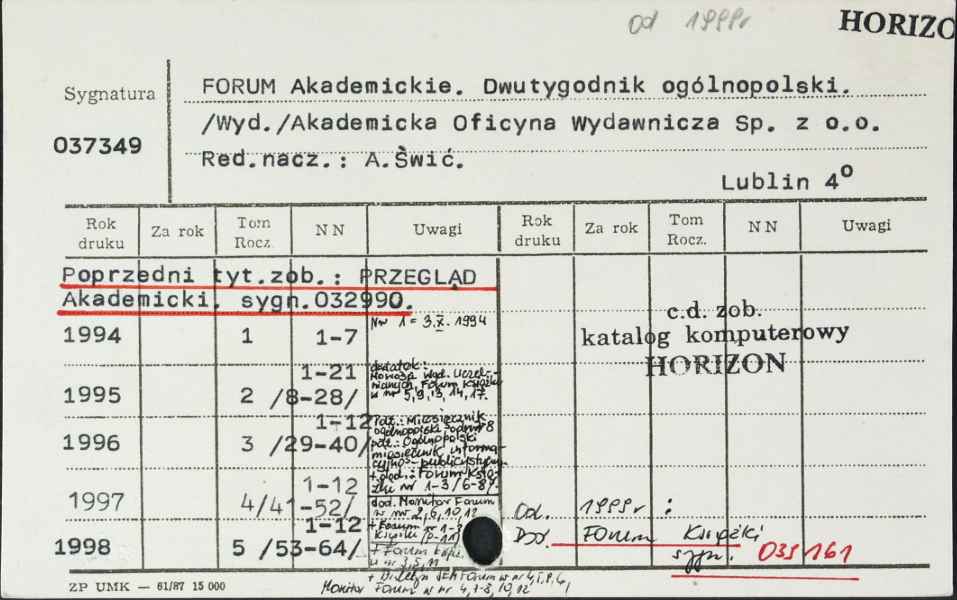 Od 1999r
HORIZO
Sygnatura
037349
FORUM Akademickie. Dwutygodnik ogólnopolski.
/Wyd./Akademicka Oficyna Wydawnicza Sp. z o.o.
Red.nacz.: A.Świć.
Lublin 4°
Rok druku Za rok Tom Rocz. NN Uwagi Rok druku Za rok Tom Rocz. NN Uwagi
Poprzedni tyt.zob.: PRZEGLĄD
Akademicki. sygn.032990.
1994 1 1-7 Nr 1 = 3.X.1994
c.d. zob.
katalog komputerowy
HORIZON
1-21
1995 2 /8-28/
dodatek:
Wyd. Uczel-
nianych, Forum Książki
w nr 5,9,13,14,17.
1-12
1996 3 /29-40/
Podt.: Miesięcznik
ogólnopolski od nr 8
podt.: Ogólnopolski
miesięcznik informa-
cyjno-publicystyczny
+ dod.: Forum Ksią-
żki nr 1-3/6-8/.
1-12
1997 4/41-52/
dod. Monitor Forum
w nr 2,6,10,12
+ Forum nr 1-3
Książki
1-12
1998 5 /53-64/
+ Forum Książ.
w nr 3,5,11
+ Biuletyn Forum w nr
Monitor Forum w nr 4,7-8,10,12
Od. 1999r :
Dod. Forum Książki
sygn. 035161
ZP UMK — 61/87 15 000